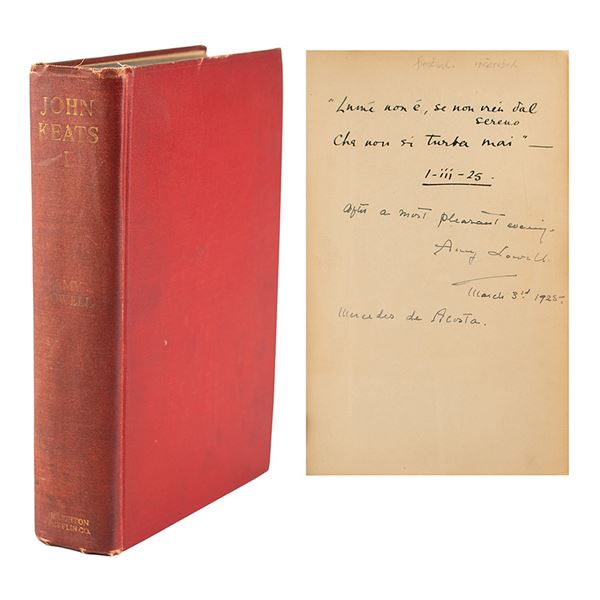 JOHN
KEATS
I
AMY
LOWELL
HOUGHTON
MIFFLIN CO.
"Lumé non é, se non vién dal
sereno
Che non si turba mai" —
I-iii-25.
After a most pleasant evening.
Amy Lowell.
March 3rd 1925.
Mercedes de Acosta.